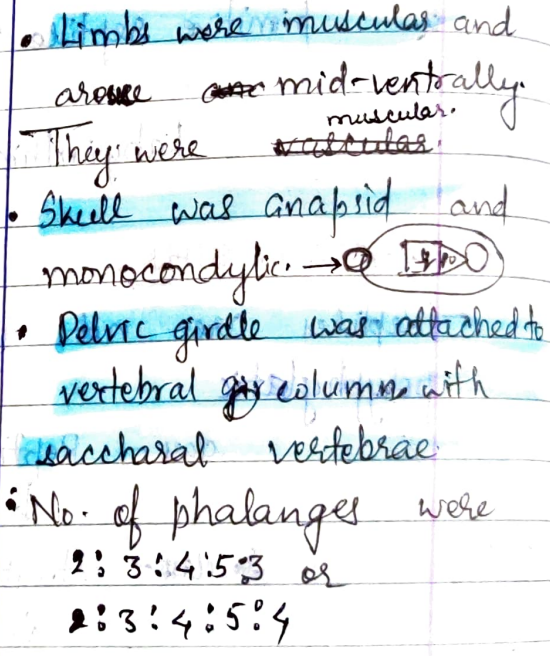 • Limbs were muscular and
arouse are mid-ventrally.
muscular.
They were vascular.
• Skull was anapsid and
monocondylic. →
• Pelvic girdle was attached to
vertebral gir column with
saccharal vertebrae
• No. of phalanges were
2:3:4:5:3 or
2:3:4:5:4